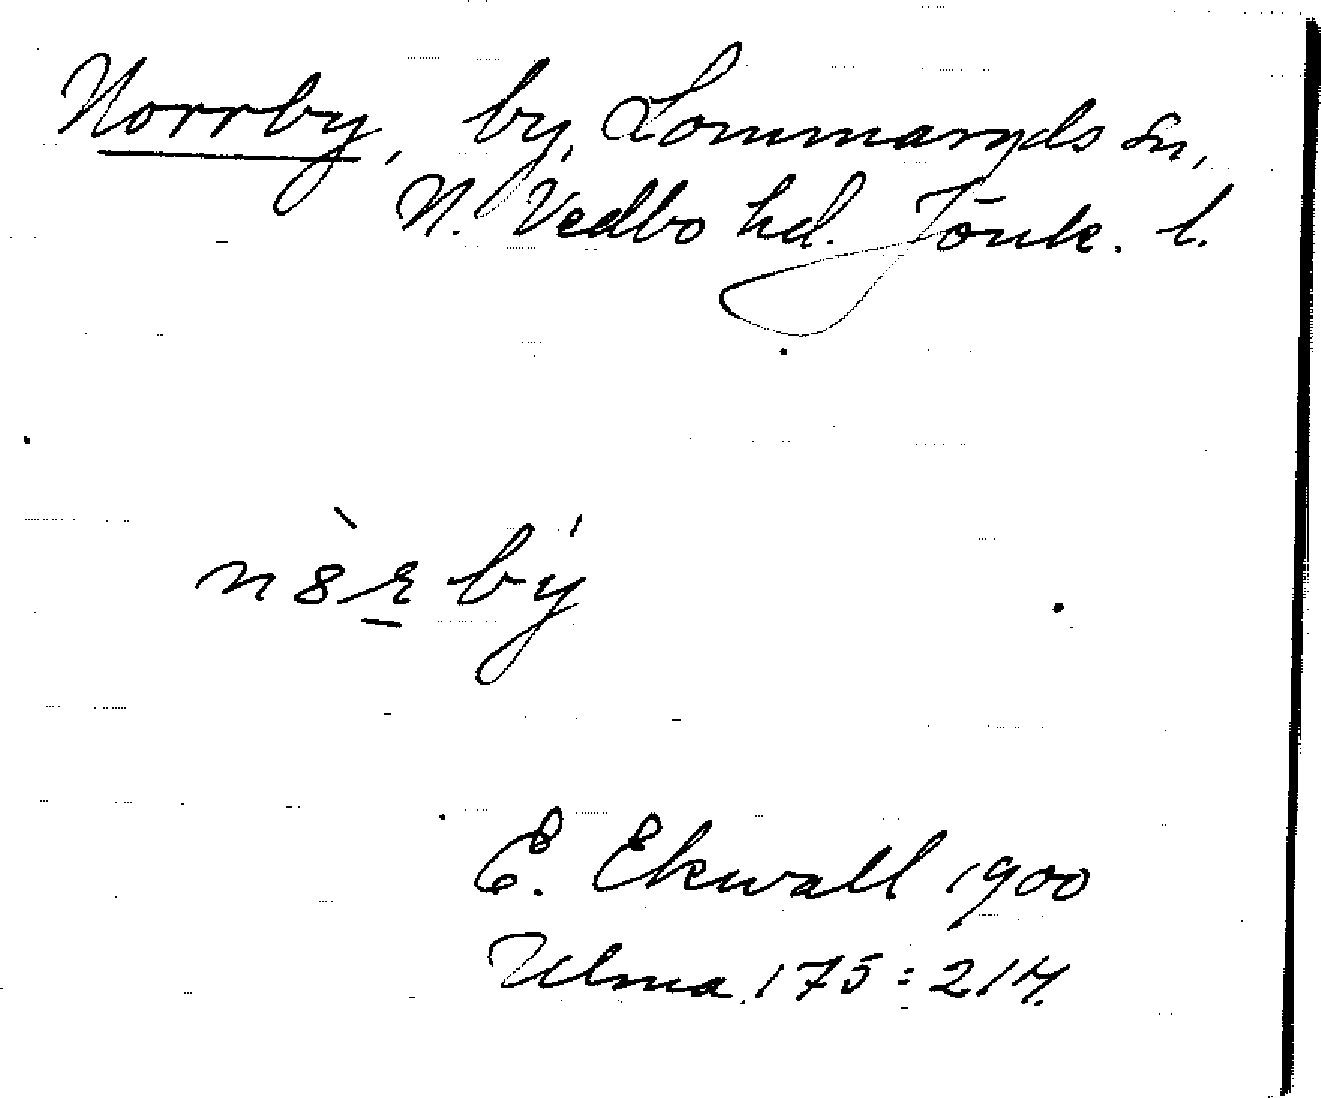 Norrby, by, Lommaryds sn,
N. Vedbo hd. Jönk. l.
E. Ekwall 1900
Ulma 175:214.